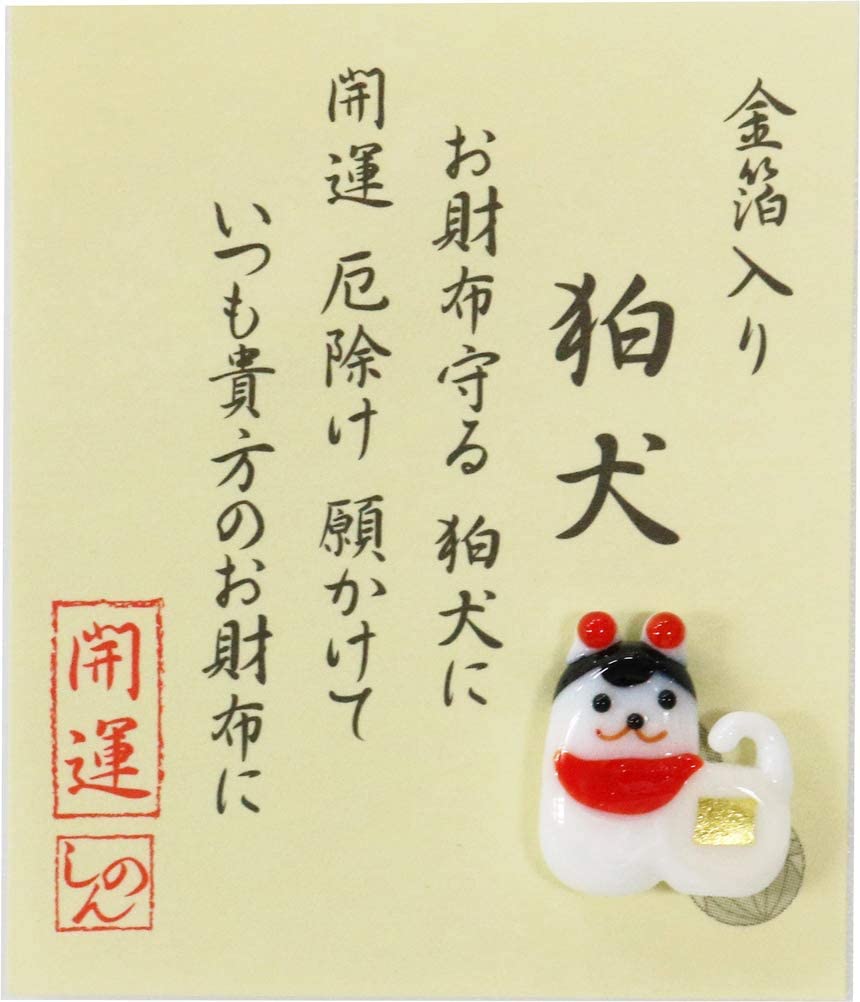 金箔入り
狛犬
お財布守る 狛犬に
開運 厄除け 願かけて
いつも貴方のお財布に
開運
しのん